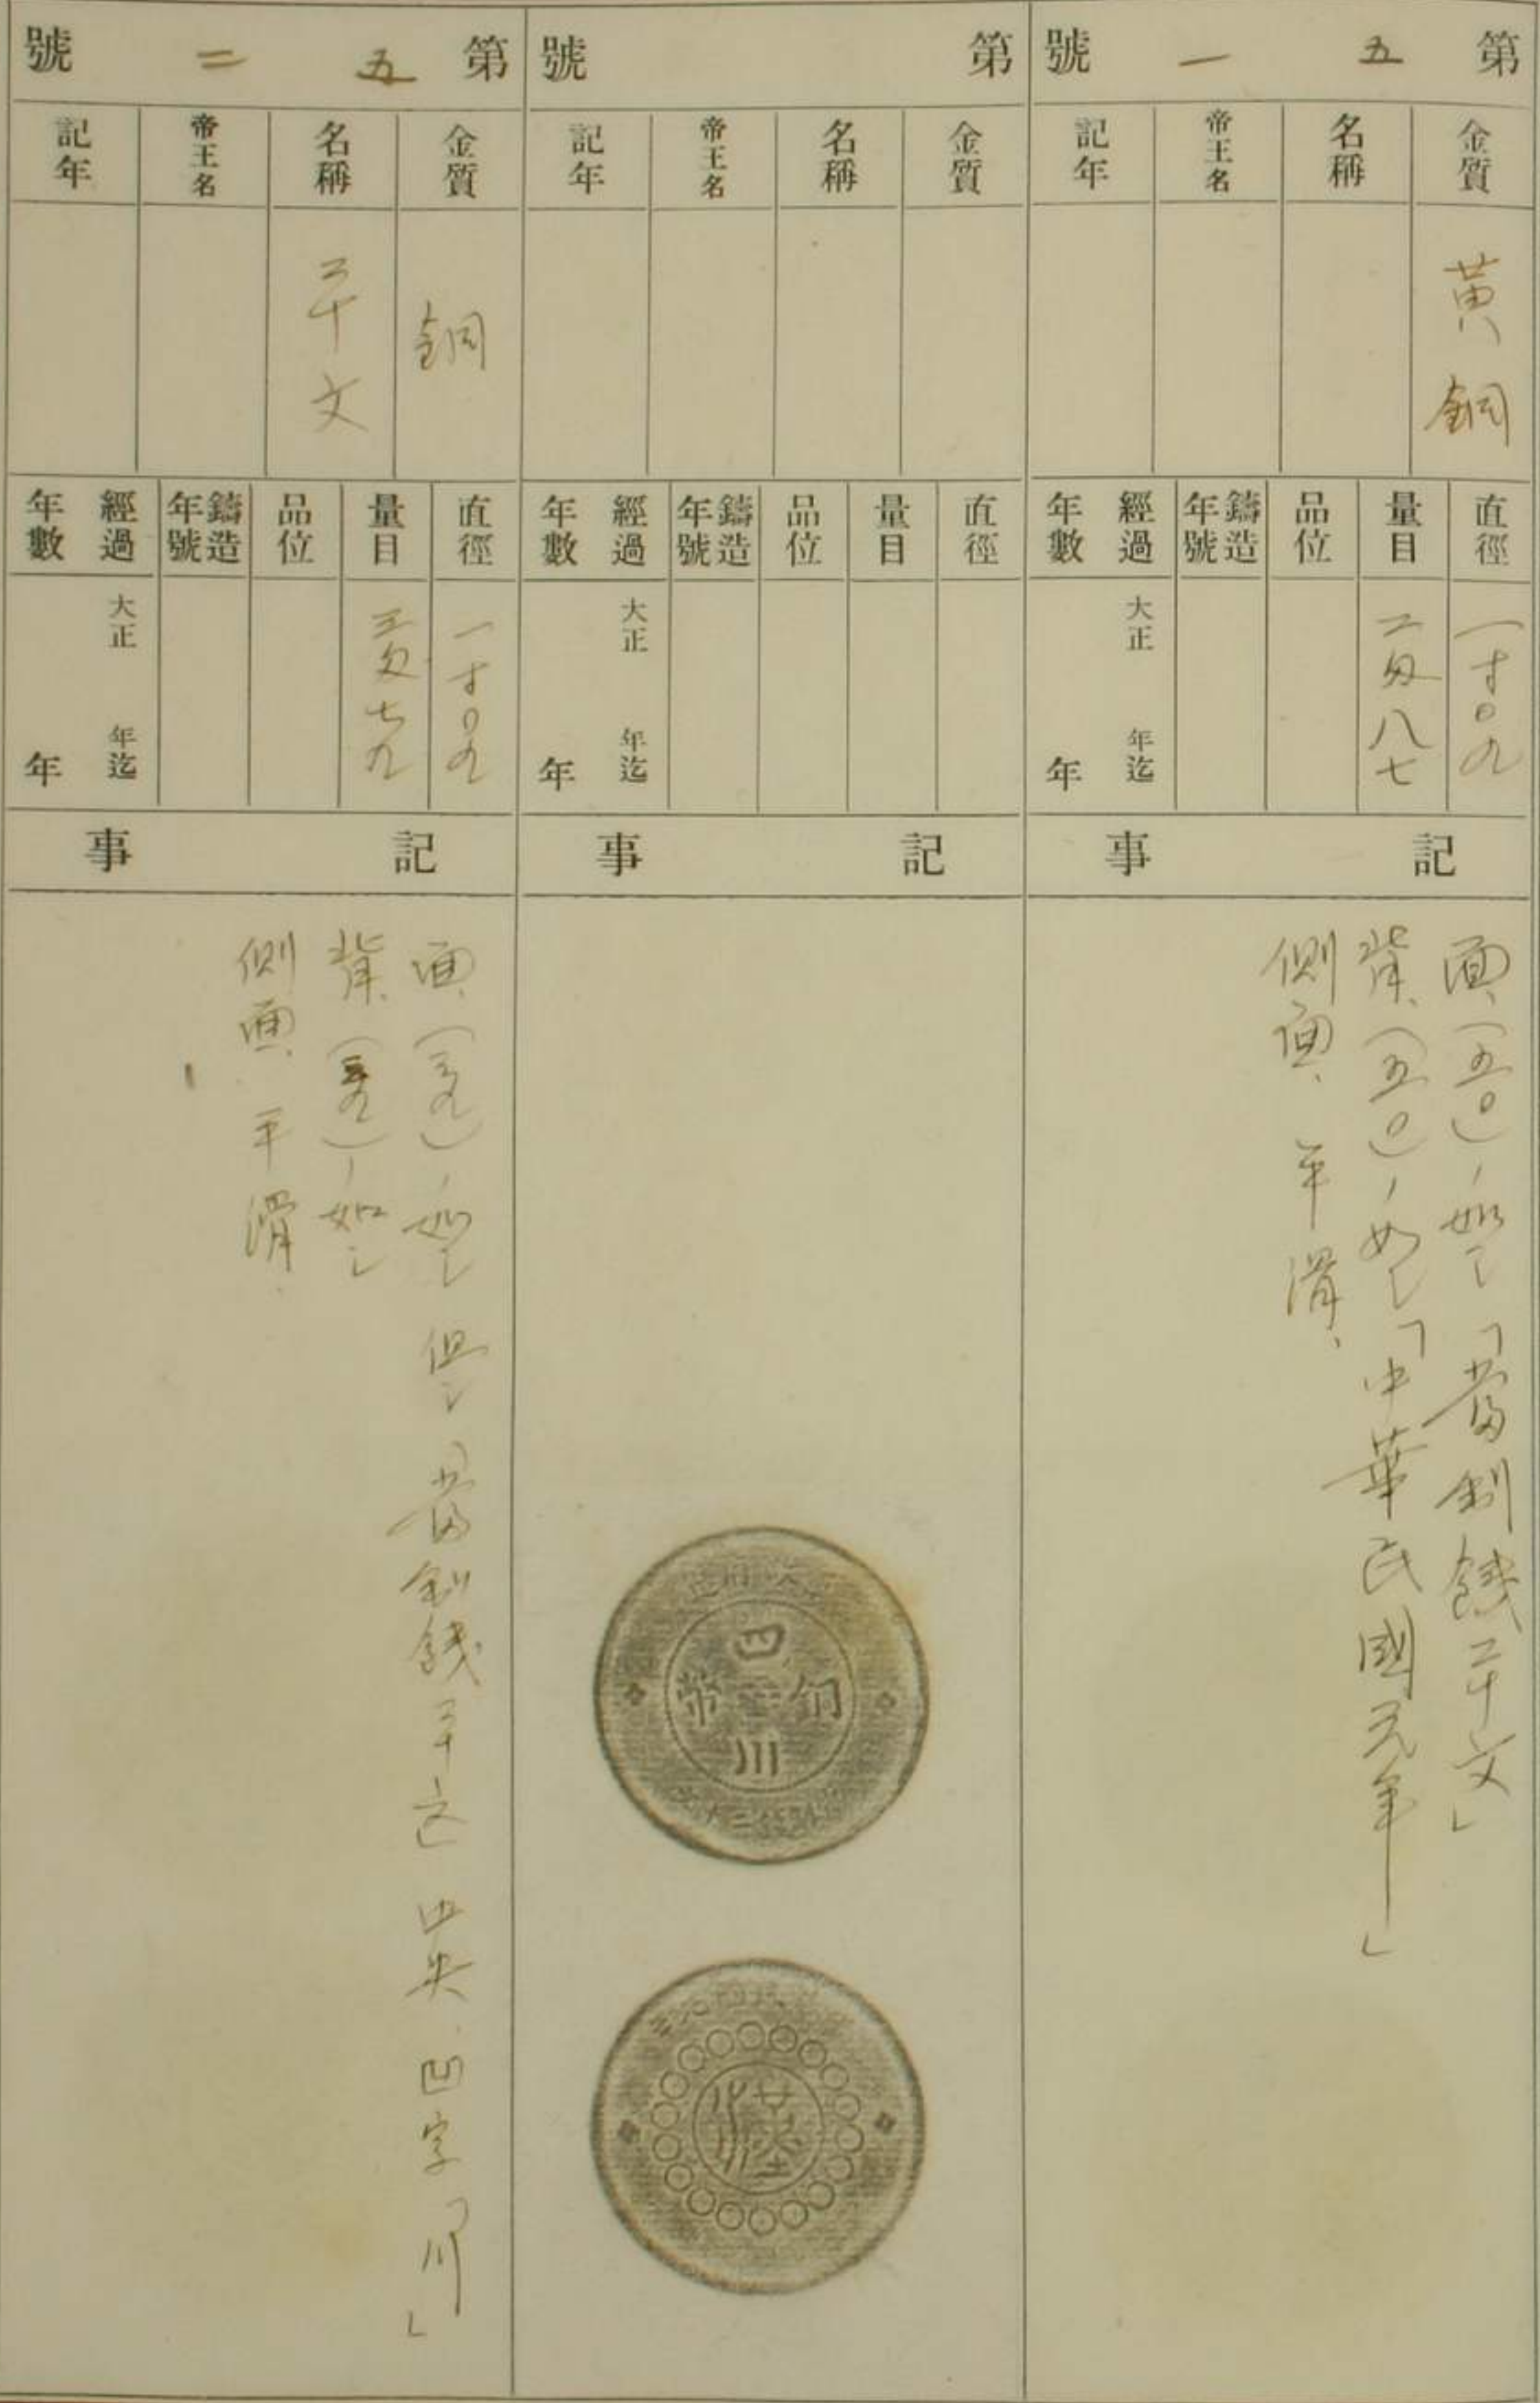 第五一號
金質
名稱
帝王名
記年
黃銅
直徑
量目
品位
鑄造年號
經過年數
一寸〇九
二匁八七
大正 年迄
年
記事
面、(五〇)ノ如シ「當制錢二十文」
背、(五〇)ノ如シ「中華民國元年」
側面、平滑、
第 號
金質
名稱
帝王名
記年
直徑
量目
品位
鑄造年號
經過年數
大正 年迄
年
記事
四川
銅幣
漢
第五二號
金質
名稱
帝王名
記年
銅
二十文
直徑
量目
品位
鑄造年號
經過年數
一寸〇九
三匁七九
大正 年迄
年
記事
面、 ノ如シ 但シ「當制錢 中央、凹字「川」
背、 ノ如シ
側面、平滑、